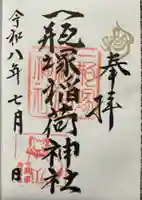 奉拝
瓦塚稲荷神社
令和八年七月 日